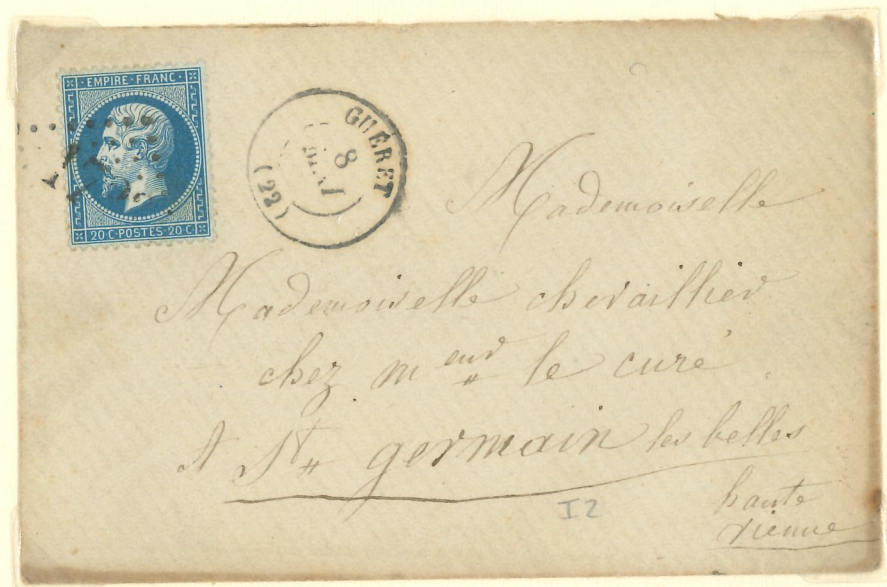 EMPIRE·FRANC·
20·C·POSTES·20·C·
GUÉRET
8
(22)
Mademoiselle
Mademoiselle chevaillier
chez meur le curé
A St germain les belles
haute
vienne
I2